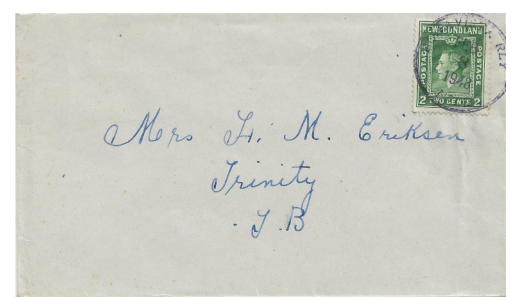 NEWFOUNDLAND
POSTAGE
POSTAGE
2 TWO CENTS 2
RLY
1948
Mrs H. M. Eriksen
Trinity
T.B